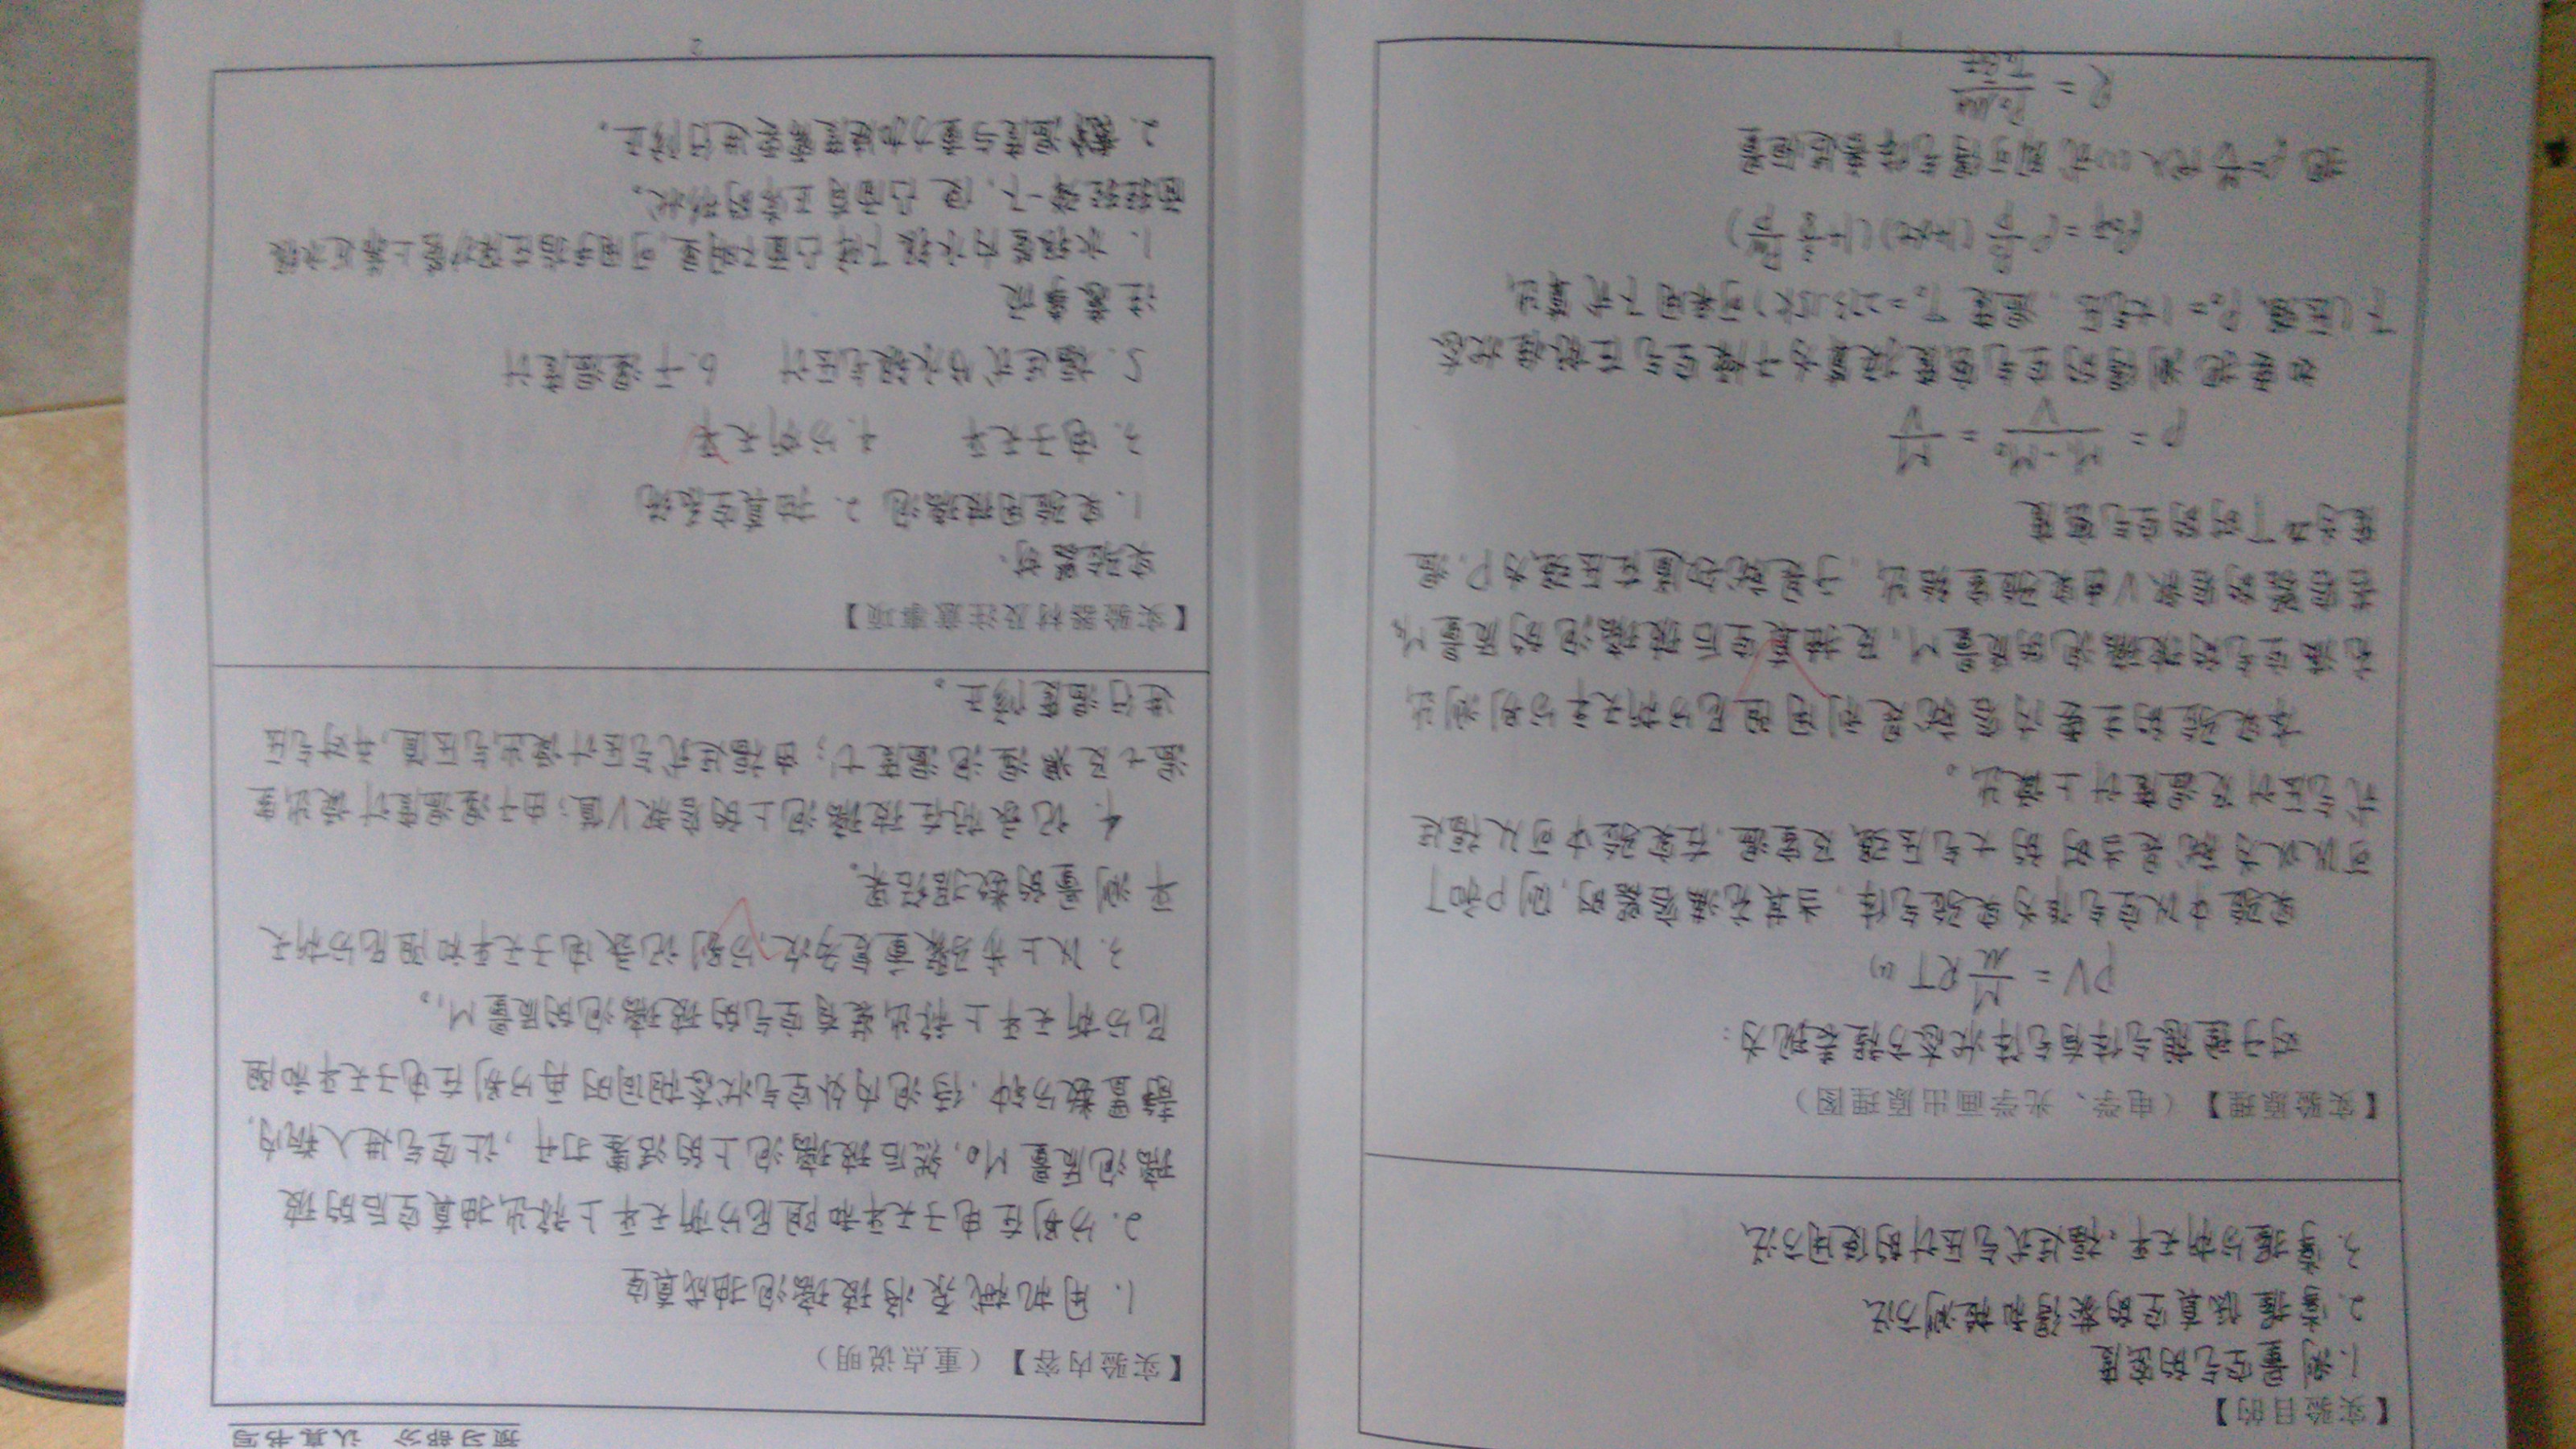 【实验目的】
1. 测量空气的密度
2. 掌握低真空的获得和检测方法
3. 掌握分析天平、福廷式气压计的使用方法
【实验原理】（电学、光学画出原理图）
对于理想气体有气体状态方程表现为：
PV = M/μ RT (1)
实验中以空气作为实验气体，当其充满容器时，则P和T
可以认为就是当时的大气压强及室温，在实验中可从福廷
式气压计及温度计上读出。
本实验的主要内容就是利用阻尼分析天平分别测出
充满空气的玻璃泡的质量M₁及抽真空后玻璃泡的质量M₀
若容器的容积V由实验室给出，于是就知道在压强为P，温
度为T时的空气密度
ρ = (M₁-M₀)/V = M/V
如要把测得的空气密度换算为干燥空气在标准状态
下（压强 P₀=1大气压，温度 T₀=273.15K）可采用下式算出
= ρ P₀/P (1+αt)(1+3/8 Pw/P)
把 代入(1)式即可得气体普适恒量
R =
1
预习部分 认真书写
【实验内容】（重点说明）
1. 用机械泵将玻璃泡抽成真空
2. 分别在电子天平和阻尼分析天平上称出抽真空后的玻
璃泡质量M₀，然后玻璃泡上的活塞打开，让空气进入瓶内，
静置数分钟，待泡内外空气状态相同时再分别在电子天平和阻
尼分析天平上称出装有空气的玻璃泡的质量M₁。
3. 以上步骤重复多次，分别记录电子天平和阻尼分析天
平测量的数据结果。
4. 记录标在玻璃泡上的容积V值；由干湿温度计读出室
温t及湿泡温度t'；由福廷式气压计读出气压值，并对气压
进行温度修正。
【实验器材及注意事项】
实验器材：
1. 实验用玻璃泡 2. 抽真空系统
3. 电子天平 4. 分析天平
5. 福廷式水银气压计 6. 干湿温度计
注意事项
1. 水银管内水银下降凸面不明显，可用手指在保护管上靠近水银
面轻轻弹一下，使凸面有正常的形状。
2. 温度与重力加速度需要进行修正。
2